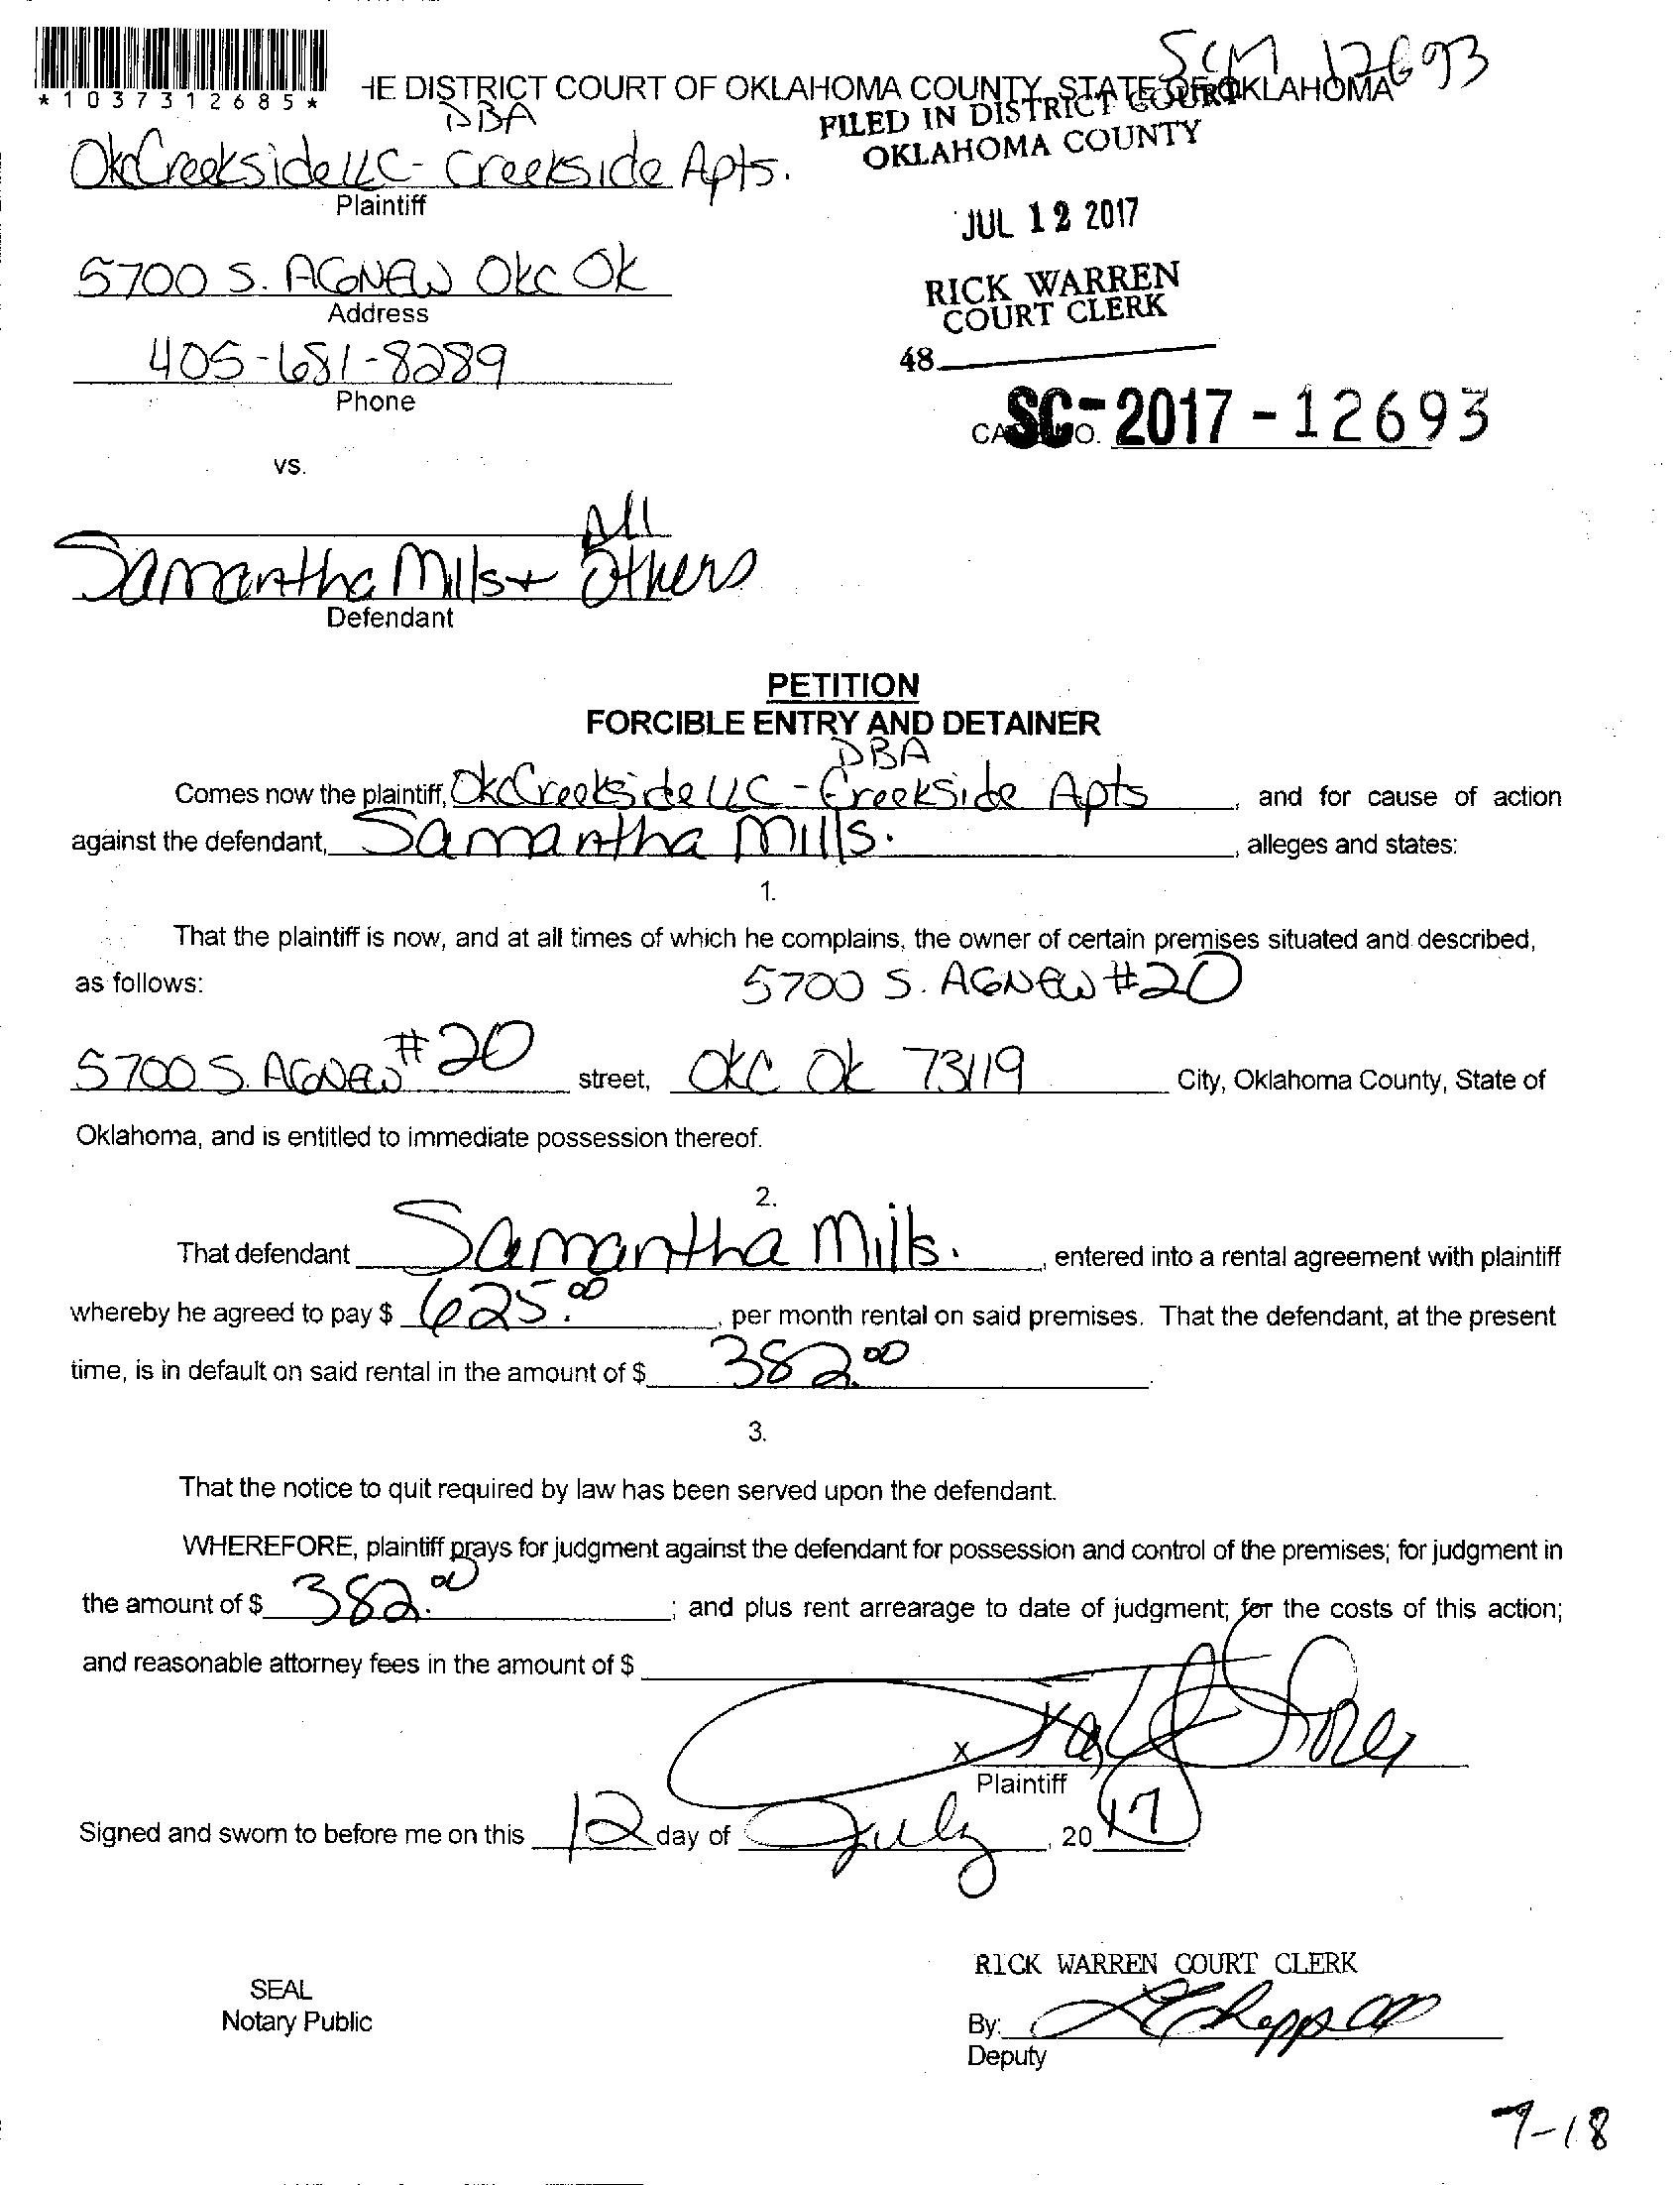 SCM 12693
*1037312685*
HE DISTRICT COURT OF OKLAHOMA COUNTY, STATE OF OKLAHOMA
FILED IN DISTRICT COURT
OKLAHOMA COUNTY
DBA
OkcCreekside LLC - Creekside Apts.
Plaintiff
JUL 12 2017
5700 S. AGNEW OKC OK
Address
RICK WARREN
COURT CLERK
405-681-8289
Phone
48
CASE NO.
SC-2017-12693
vs.
All
Samantha Mills + Others
Defendant
PETITION
FORCIBLE ENTRY AND DETAINER
DBA
Comes now the plaintiff, OkcCreekside LLC - Creekside Apts, and for cause of action
against the defendant, Samantha Mills., alleges and states:
1.
That the plaintiff is now, and at all times of which he complains, the owner of certain premises situated and described,
as follows: 5700 S. AGNEW #20
5700 S. AGNEW #20 street, OKC OK 73119 City, Oklahoma County, State of
Oklahoma, and is entitled to immediate possession thereof.
2.
That defendant Samantha Mills., entered into a rental agreement with plaintiff
whereby he agreed to pay $ 625.00, per month rental on said premises. That the defendant, at the present
time, is in default on said rental in the amount of $ 382.00.
3.
That the notice to quit required by law has been served upon the defendant.
WHEREFORE, plaintiff prays for judgment against the defendant for possession and control of the premises; for judgment in
the amount of $ 382.00; and plus rent arrearage to date of judgment; for the costs of this action;
and reasonable attorney fees in the amount of $
x
Plaintiff
Signed and sworn to before me on this 12 day of July, 2017.
RICK WARREN COURT CLERK
SEAL
Notary Public
By:
Deputy
7-18